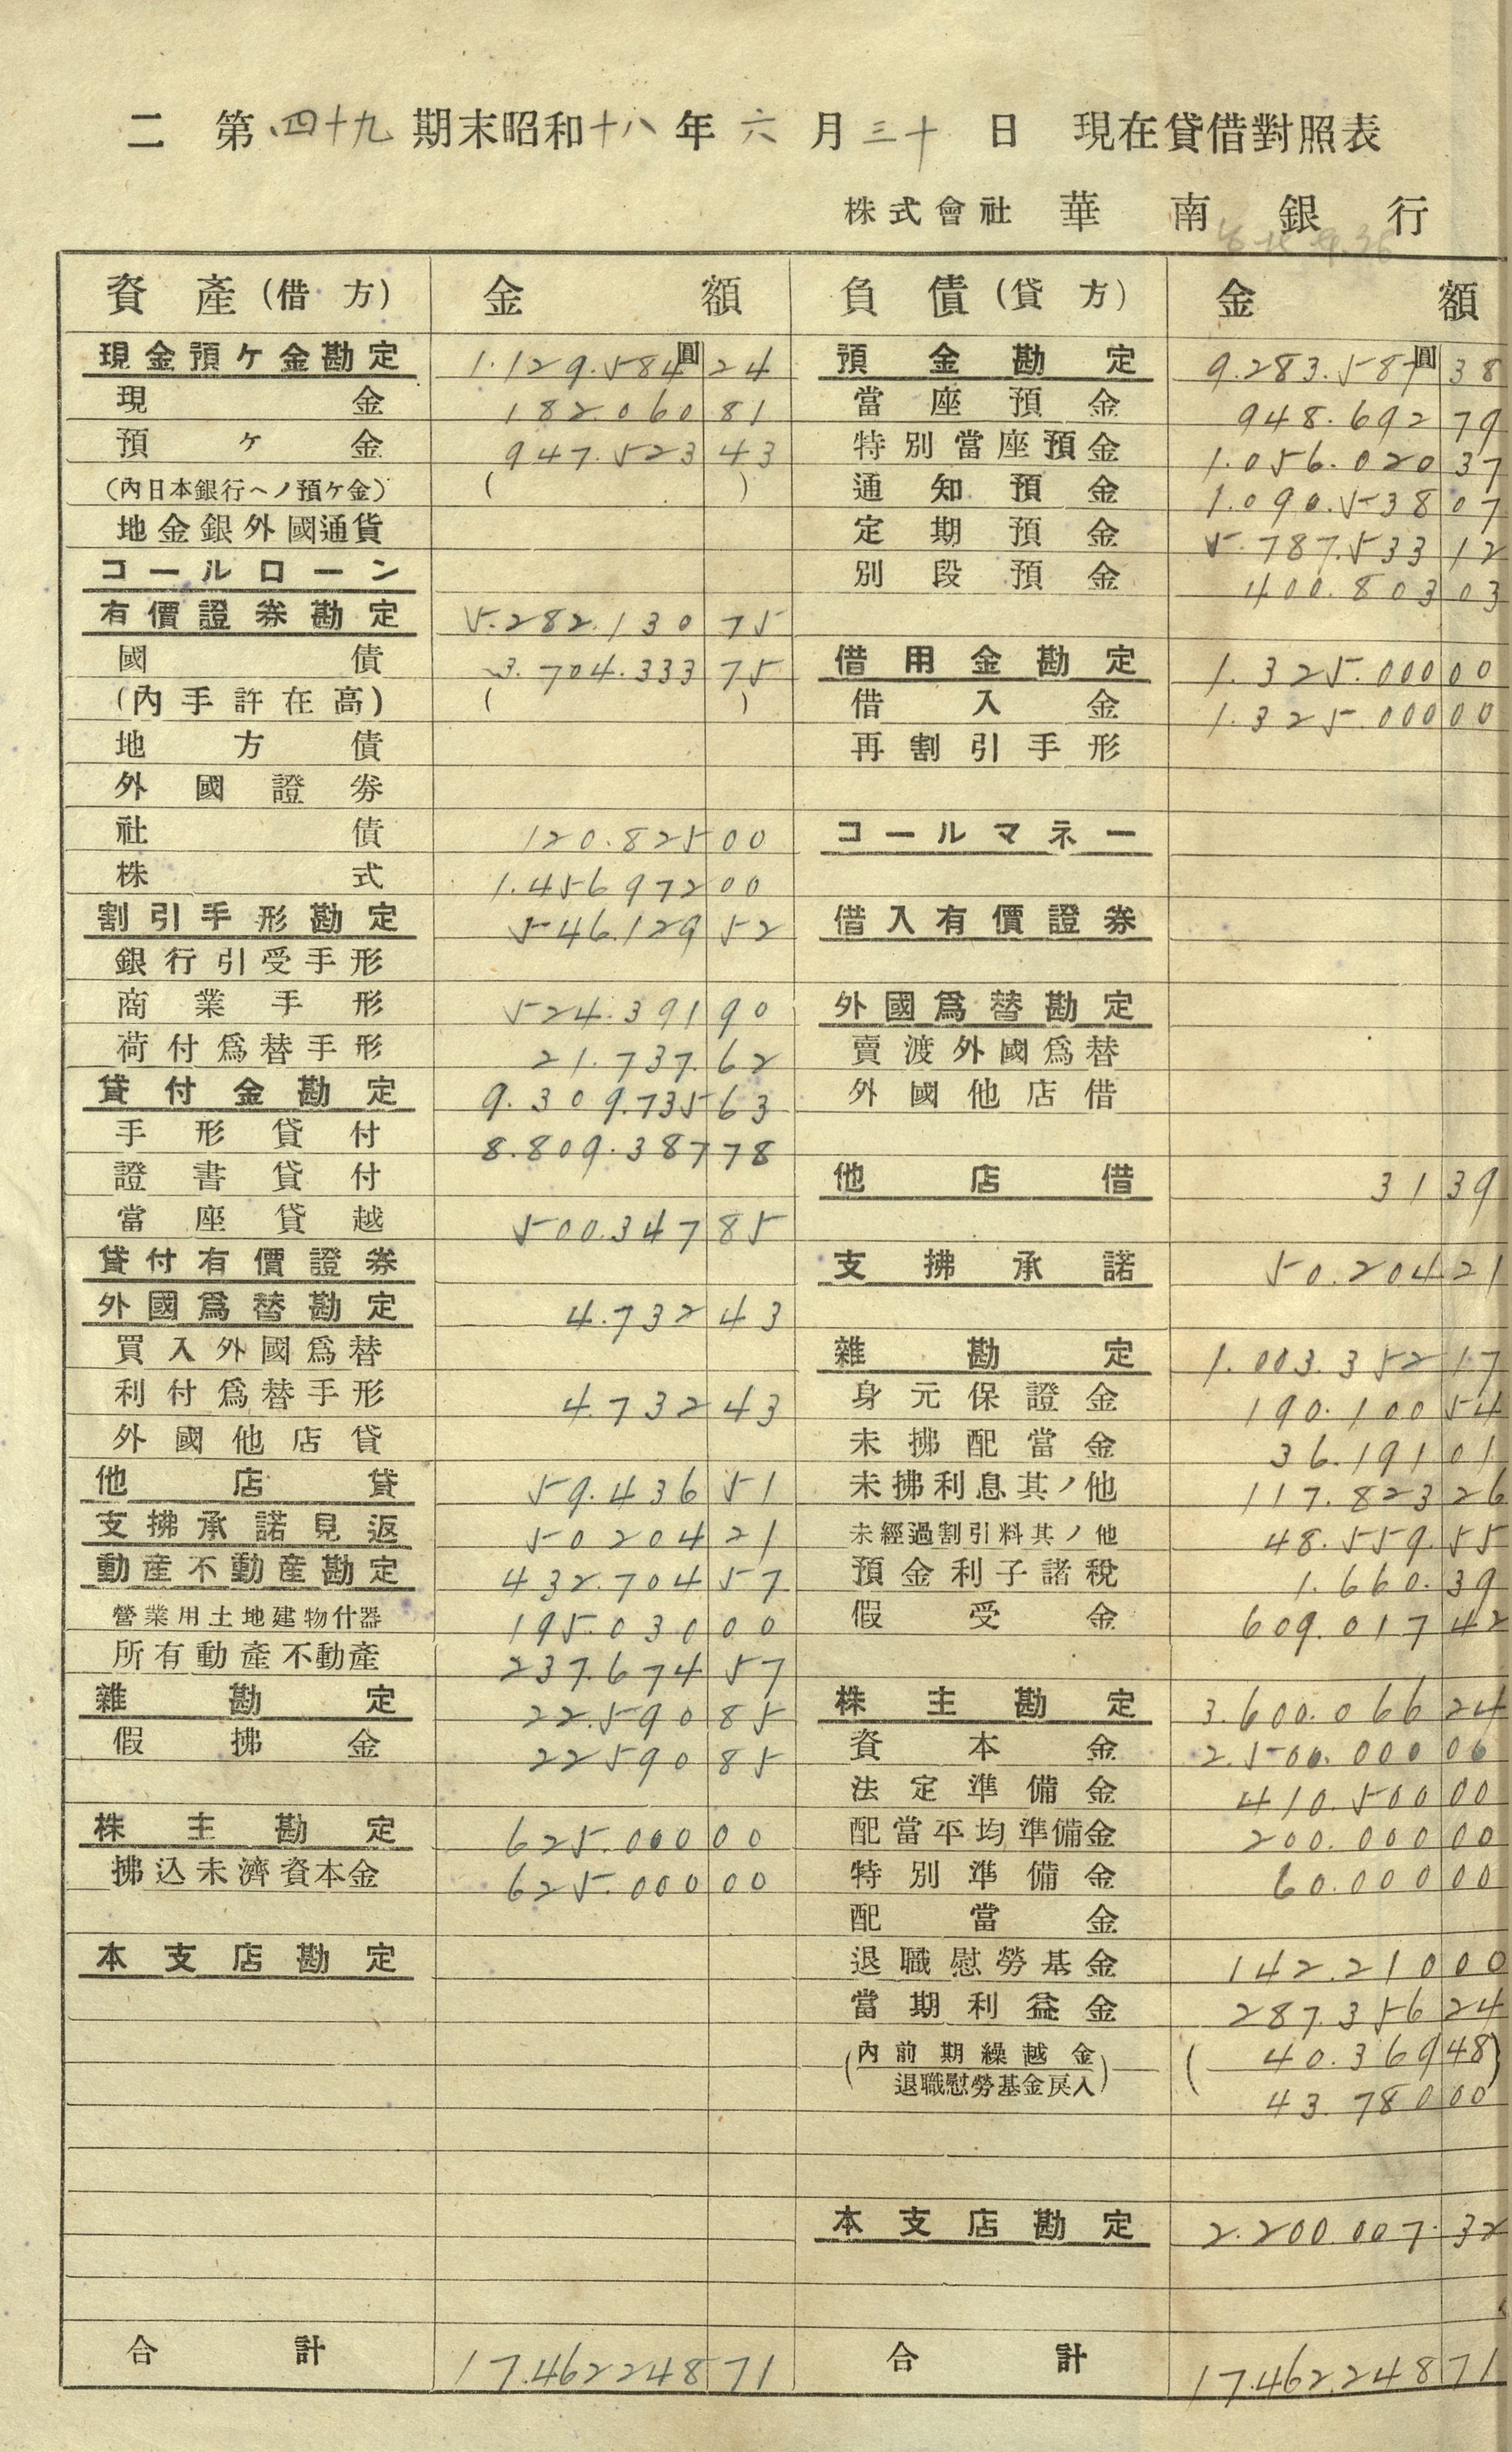 二 第四十九期末昭和十八年六月三十日 現在貸借對照表
株式會社 華南銀行
資產(借方) 金額 負債(貸方) 金額
現金預ケ金勘定 1.129.584圓24
現金 182.060 81
預ケ金 947.523 43
(內日本銀行ヘノ預ケ金) ( )
地金銀外國通貨
コールローン
有價證券勘定 5.282.130 75
國債 3.704.333 75
(內手許在高) ( )
地方債
外國證券
社債 120.825 00
株式 1.456972 00
割引手形勘定 546.129 52
銀行引受手形
商業手形 524.391 90
荷付爲替手形 21.737. 62
貸付金勘定 9.309.735 63
手形貸付 8.809.387 78
證書貸付
當座貸越 500.347 85
貸付有價證券
外國爲替勘定 4.732 43
買入外國爲替
利付爲替手形 4.732 43
外國他店貸
他店貸 59.436 51
支拂承諾見返 50204 21
動産不動産勘定 432.704 57
營業用土地建物什器 195.030 00
所有動產不動產 237.674 57
雜勘定 22.590 85
假拂金 22590 85
株主勘定 625.000 00
拂込未濟資本金 625.000 00
本支店勘定
合計 17.462248 71
預金勘定 9.283.587圓38
當座預金 948.692 79
特別當座預金 1.056.020 37
通知預金 1.090.538 07
定期預金 5.787.533 12
別段預金 400.803 03
借用金勘定 1.325.000 00
借入金 1.325.000 00
再割引手形
コールマネー
借入有價證券
外國爲替勘定
賣渡外國爲替
外國他店借
他店借 31 39
支拂承諾 50.204 21
雜勘定 1.003.352 17
身元保證金 190.100 54
未拂配當金 36.191 01
未拂利息其ノ他 117.823 26
未經過割引料其ノ他 48.559. 55
預金利子諸稅 1.660. 39
假受金 609.017 42
株主勘定 3.600.066 24
資本金 2.500.000 00
法定準備金 410.500 00
配當平均準備金 200.000 00
特別準備金 60.000 00
配當金
退職慰勞基金 142.210 00
當期利益金 287.356 24
(內前期繰越金 (40.369 48)
退職慰勞基金戾入) 43.780 00
本支店勘定 2.200.007. 32
合計 17.462.248 71